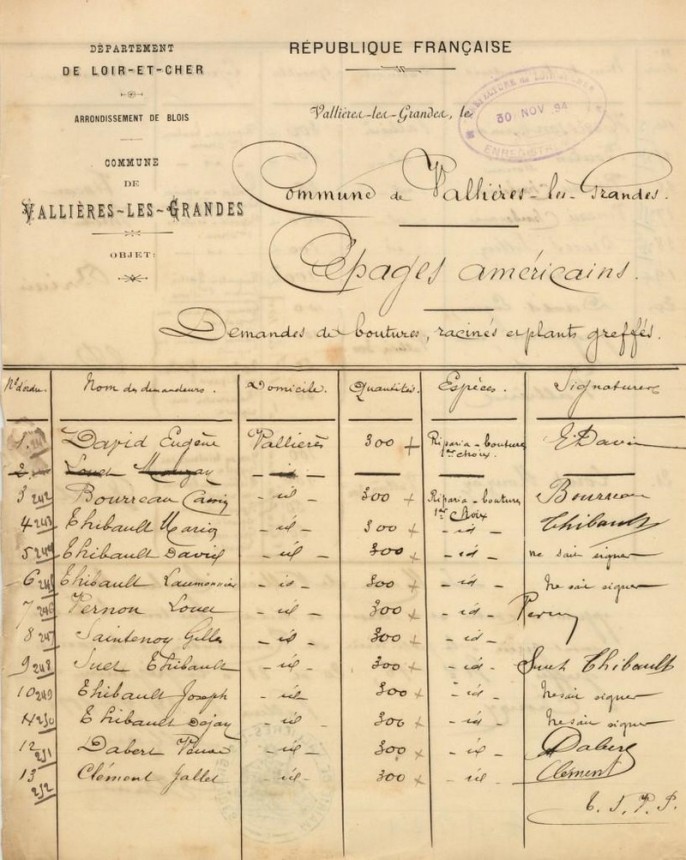 DÉPARTEMENT
DE LOIR-ET-CHER
ARRONDISSEMENT DE BLOIS
COMMUNE
DE
VALLIÈRES-LES-GRANDES
OBJET:
RÉPUBLIQUE FRANÇAISE
Vallières-les-Grandes, le
PRÉFECTURE DE LOIR-ET-CHER
30 NOV 94
Commune de Vallières-les-Grandes.
Épages américains.
Demandes de boutures, racinés et plants greffés.
Nos d'ordre Nom des demandeurs. Domicile. Quantités. Espèces. Signatures
1. 241 David Eugène Vallières 300 + Riparia-bouture 1er choix. E David
2. - id -
3 242 Bourreau 300 + Riparia-bouture 1er choix Bourreau
4 243 Thibault 300 + - id - Thibault
5 244 Thibault David - id - 300 + - id - ne sait signer
6 245 Thibault - id - 300 + - id - ne sait signer
7 246 Vernon - id - 300 + - id -
8 247 Saintenoy Gilles - id - 300 + - id -
9 248 Suet Thibault - id - 300 + - id - Suet Thibault
10 249 Thibault Joseph - id - 300 + - id - ne sait signer
11 250 Thibault - id - 300 + - id - ne sait signer
12 251 Dabert - id - 300 + - id - Dabert
13 252 Clément Jallet - id - 300 + - id - Clément
T. S. P. P.